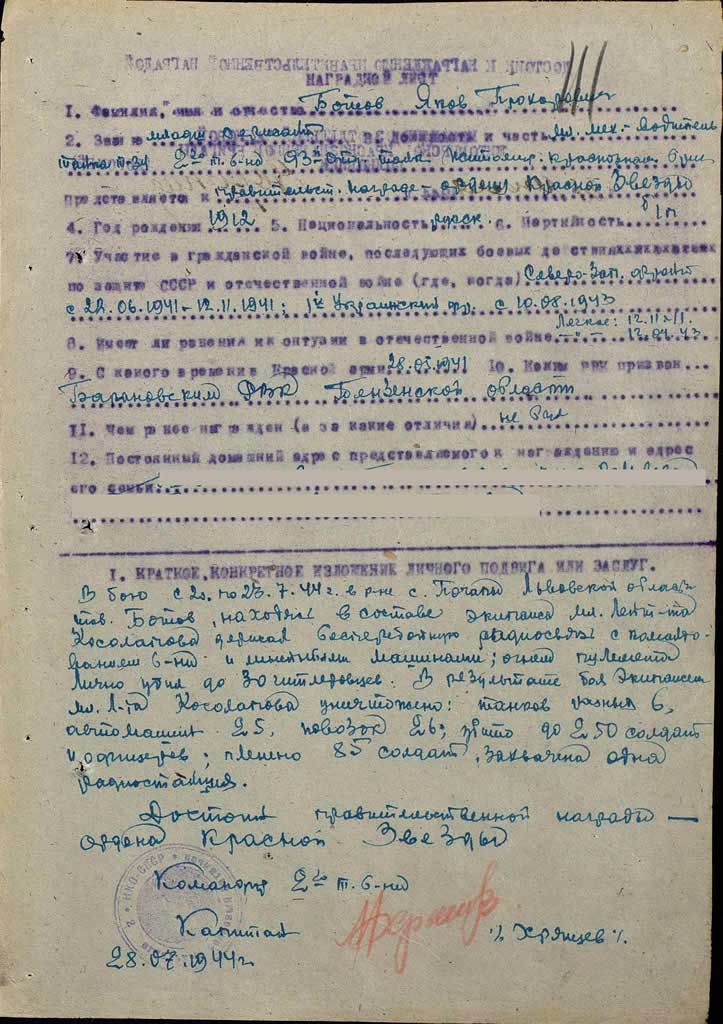 НАГРАДНОЙ ЛИСТ
1. Фамилия, имя и отчество Ботов Яков Прохорович
2. Звание младш. сержант 3. Должность и часть мл. мех.-водитель
танка Т-34 2го т. б-на 93й отд. танк. Житомир. краснознам. бриг.
Представляется к правительст. награде – ордену Красной Звезды
4. Год рождения 1912 5. Национальность русск. 6. Партийность б/п
7. Участие в гражданской войне, последующих боевых действиях
по защите СССР и отечественной войне (где, когда) Северо-Зап. фронт
с 22.06.1941-12.11.1941; 1й Украинский фр. с 10.08.1943
Легкое: 12.11.41.
8. Имеет ли ранения и контузии в отечественной войне 12.04.43
9. С какого времени в Красной армии 28.05.1941 10. Каким РВК призван
Барановским РВК Пензенской области
11. Чем ранее награжден (и за какие отличия) не был
12. Постоянный домашний адрес представляемого к награждению и адрес
его семьи:
1. КРАТКОЕ, КОНКРЕТНОЕ ИЗЛОЖЕНИЕ ЛИЧНОГО ПОДВИГА ИЛИ ЗАСЛУГ.
В бою с 20. по 23.7.44г. в р-не с. Почапы Львовской области
тов. Ботов, находясь в составе экипажа мл. лейт-та
Косолапова держал бесперебойную радиосвязь с командо-
ванием б-на и линейными машинами; огнем пулемета
лично убил до 30 гитлеровцев. В результате боя экипажем
мл. л-та Косолапова уничтожено: танков разных 6,
автомашин 25, повозок 26; убито до 250 солдат
и офицеров; пленено 85 солдат, захвачена одна
радиостанция.
Достоин правительственной награды —
ордена Красной Звезды
Командир 2го т. б-на
Капитан /Хрящев/.
28.07.1944г